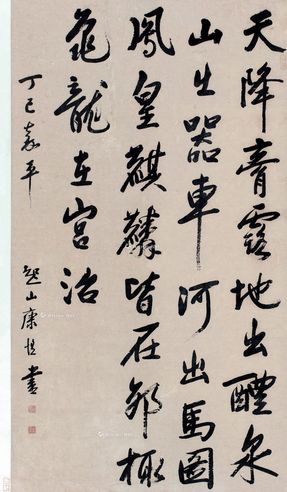 天降膏露地出醴泉
山出器車河出馬圖
鳳皇麒麟皆在郊棷
龜龍在宮沼
丁巳嘉平
起山康愷書